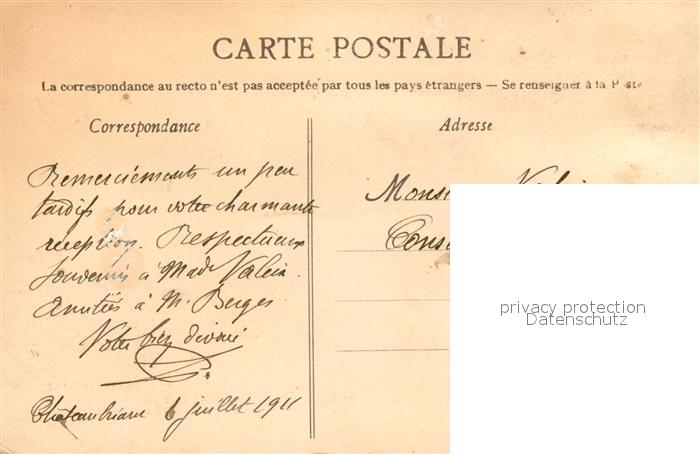 CARTE POSTALE
La correspondance au recto n'est pas acceptée par tous les pays étrangers — Se renseigner à la Poste
Correspondance
Adresse
Remerciements un peu
tardifs pour votre charmante
réception. Respectueux
souvenirs à Made Valein.
Amitiés à M. Berges
Votre bien dévoué
Chateaubriant 6 juillet 1911
Monsi
Cons
privacy protection
Datenschutz